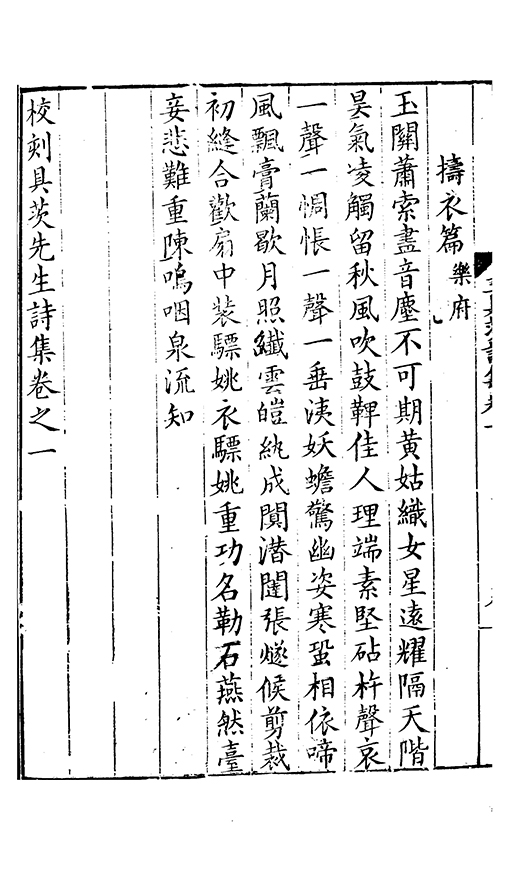 擣衣篇 樂府
玉關蕭索盡音塵不可期黃姑織女星遠耀隔天階
昊氣凌觸留秋風吹鼓鞞佳人理端素堅砧杵聲哀
一聲一惆悵一聲一垂洟妖蟾驚幽姿寒蛩相依啼
風飄膏蘭歇月照纖雲皚紈成閴潛闥張燧候剪裁
初縫合歡扇中裝驃姚衣驃姚重功名勒石燕然臺
妾悲難重陳嗚咽泉流知
校刻具茨先生詩集卷之一